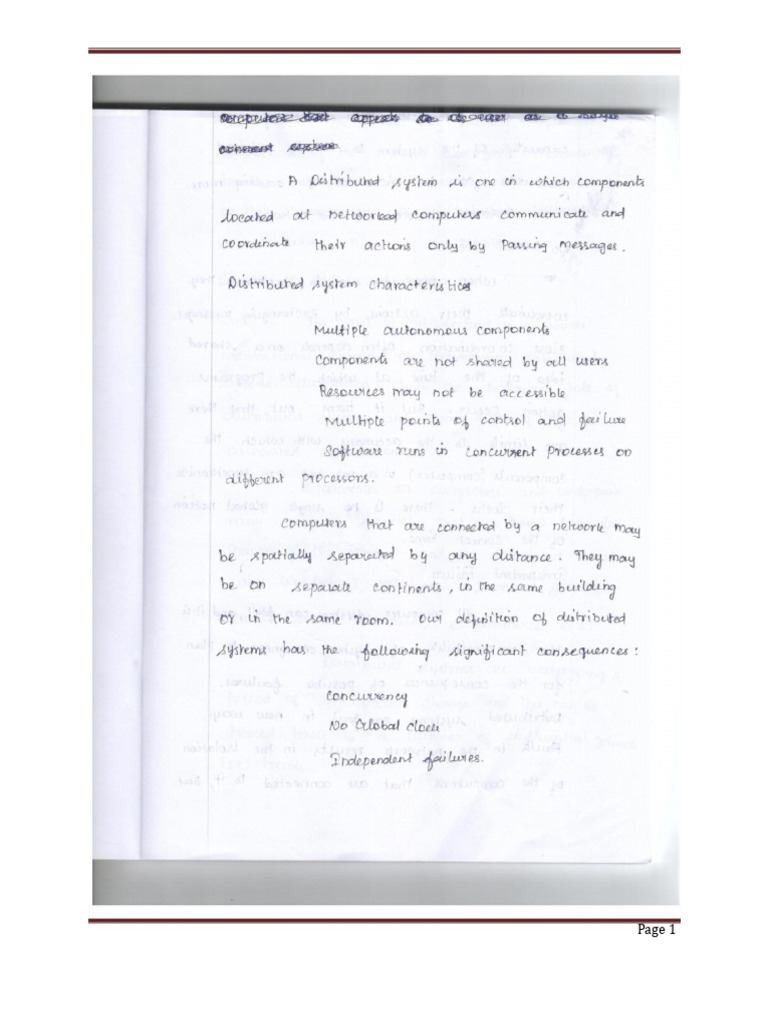 computers that appears to its user as a single
coherent system
A Distributed system is one in which components
located at networked computers communicate and
coordinate their actions only by Passing messages.
Distributed system characteristics
Multiple autonomous components
Components are not shared by all users
Resources may not be accessible
Multiple points of control and failure
Software runs in concurrent processes on
different processors.
Computers that are connected by a network may
be spatially separated by any distance. They may
be on separate continents, in the same building
or in the same room. Our definition of distributed
systems has the following significant consequences:
Concurrency
No Global clock
Independent failures.
Page 1